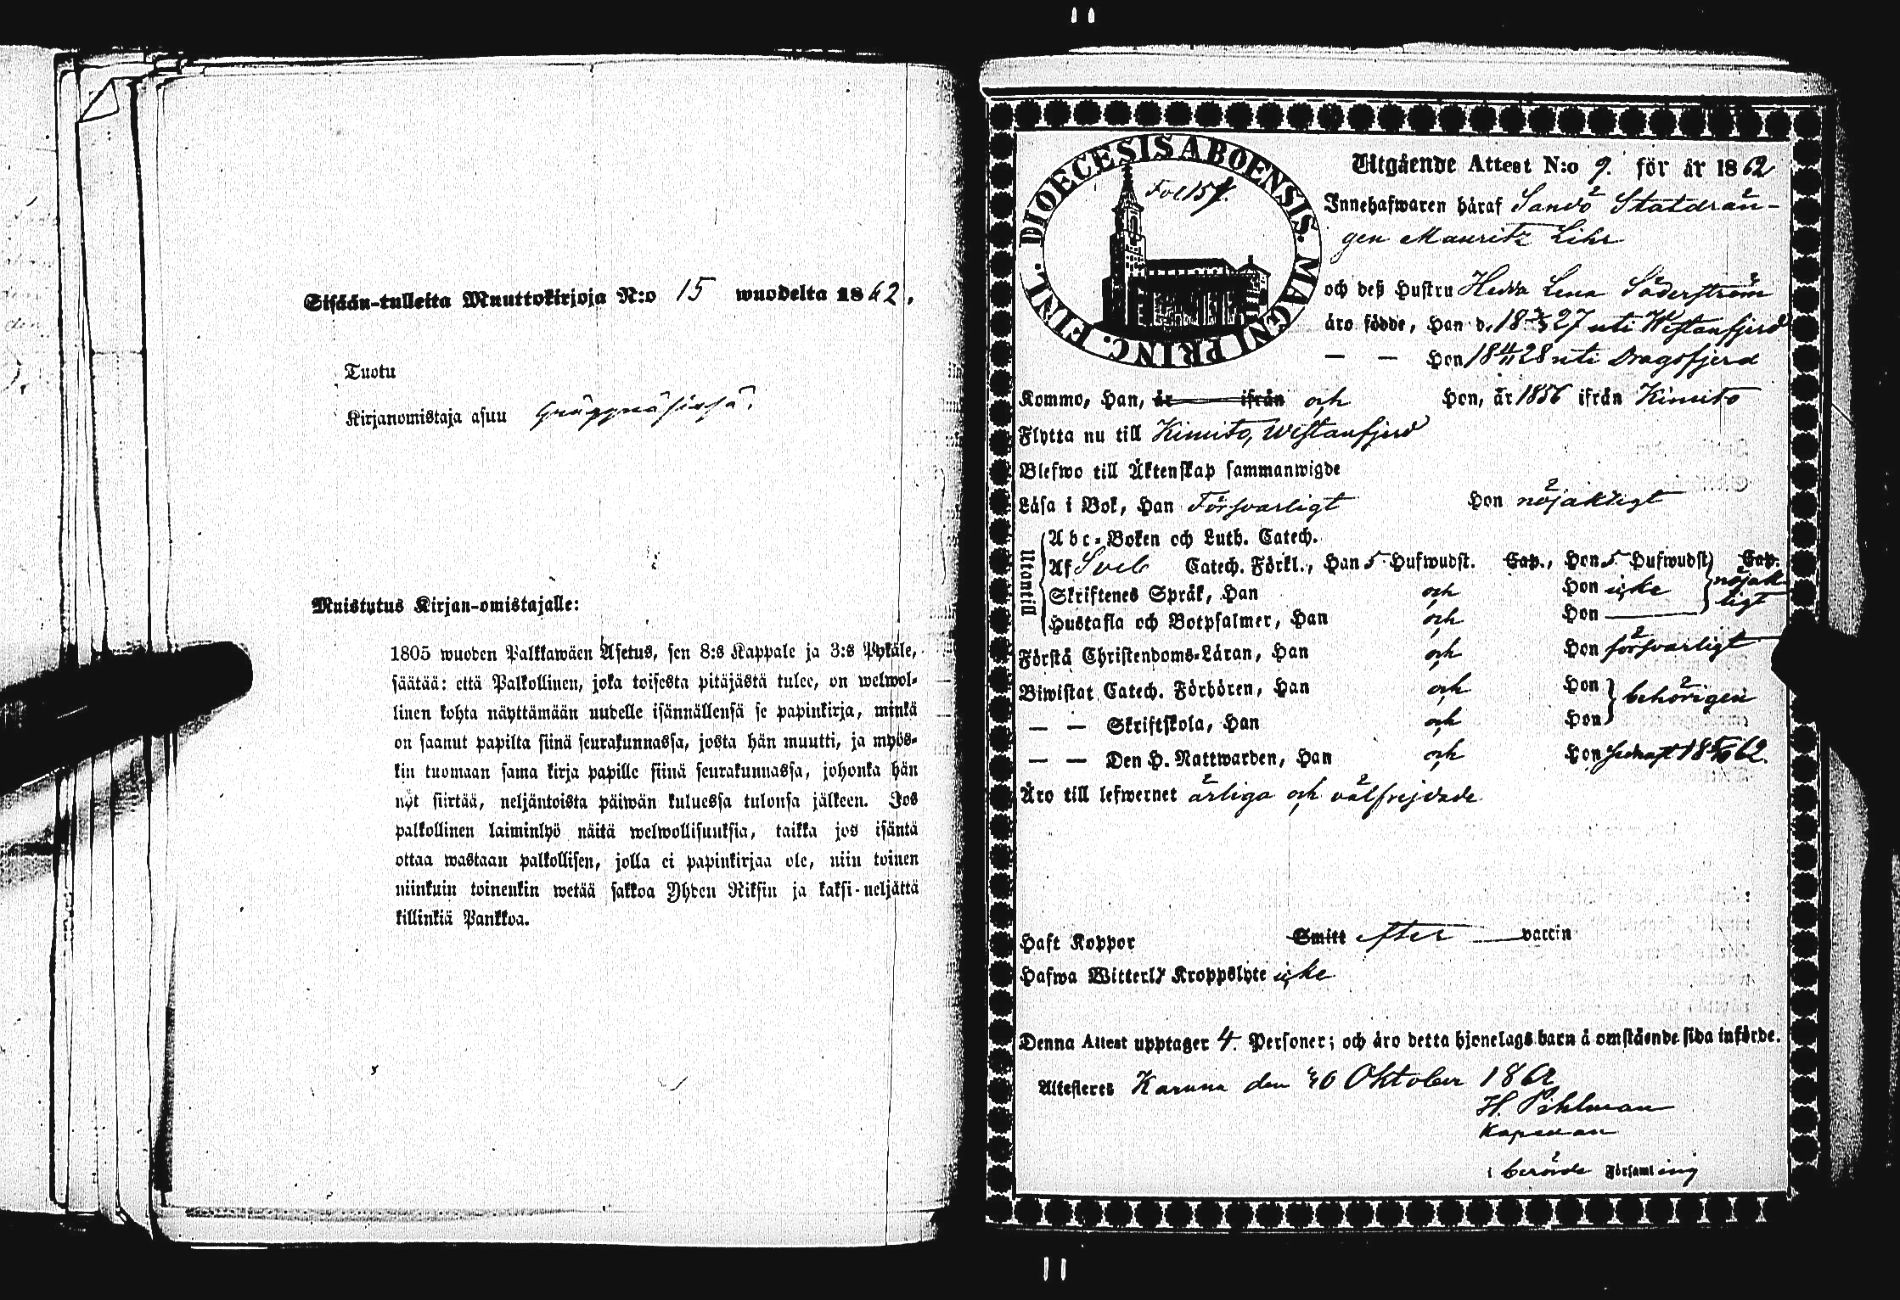 Sisään-tulleita Muuttokirjoja N:o 15 wuodelta 1862.
Tuotu
Kirjanomistaja asuu
Muistutus Kirjan-omistajalle:
1805 wuoden Palkkawäen Asetus, sen 8:s Kappale ja 3:s Pykäle,
säätää: että Palkollinen, joka toisesta pitäjästä tulee, on welwol-
linen kohta näyttämään uudelle isännällensä se papinkirja, minkä
on saanut papilta siinä seurakunnassa, josta hän muutti, ja myös-
kin tuomaan sama kirja papille siinä seurakunnassa, johonka hän
nyt siirtää, neljäntoista päiwän kuluessa tulonsa jälkeen. Jos
palkollinen laiminlyö näitä welwollisuuksia, taikka jos isäntä
ottaa wastaan palkollisen, jolla ei papinkirjaa ole, niin toinen
niinkuin toinenkin wetää sakkoa Yhden Riksin ja kaksi-neljättä
killinkiä Pankkoa.
DIOECESIS ABOENSIS. MAGNI PRINC. FINL.
Fol 157.
Utgående Attest N:o 9. för år 1862
Innehafwaren häraf Sandö Statdrän-
gen Mauritz Lihr
och deß Hustru Hedda Lena Söderström
äro födde, Han d. 18 27 uti Westanfjerd
— — Hon 18 28 uti Dragsfjerd
Komme, Han, år ifrån och Hon, år 1856 ifrån Kimito
Flytta nu till Kimito, Westanfjerd
Blefwo till Äktenskap sammanwigde
Läsa i Bok, Han Försvarligt Hon nöjaktigt
Utantill
Abc-Boken och Luth. Catech.
Af Sveb Catech. Förkl., Han 5 Hufwudst. Cap., Hon 5 Hufwudst. Cap.
Skriftenes Språk, Han och Hon icke nöjak-
Hustafla och Botpsalmer, Han och Hon — ligt
Förstå Christendoms-Läran, Han och Hon försvarligt
Biwistat Catech. Förhören, Han och Hon behörigen
— — Skriftskola, Han och Hon
— — Den H. Nattwarden, Han och Hon senast 18 62.
Äro till lefwernet ärliga och välfrejdade
Haft Koppor Smitt efter vaccin
Hafwa Witterl. Kroppslyte icke
Denna Attest upptager 4. Personer; och äro detta hjonelags barn å omstående sida införde.
Attesteres Karuna den 10 Oktober 1862
H. Pihlman
Kapellan
i berörde Församling